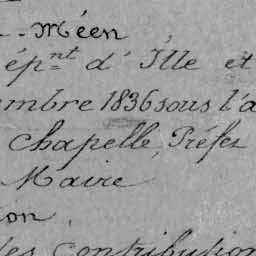 - Méen
épnt d'Ille et
mbre 1836 sous l'a
Chapelle, Préfet
Maire
ion
les contribution